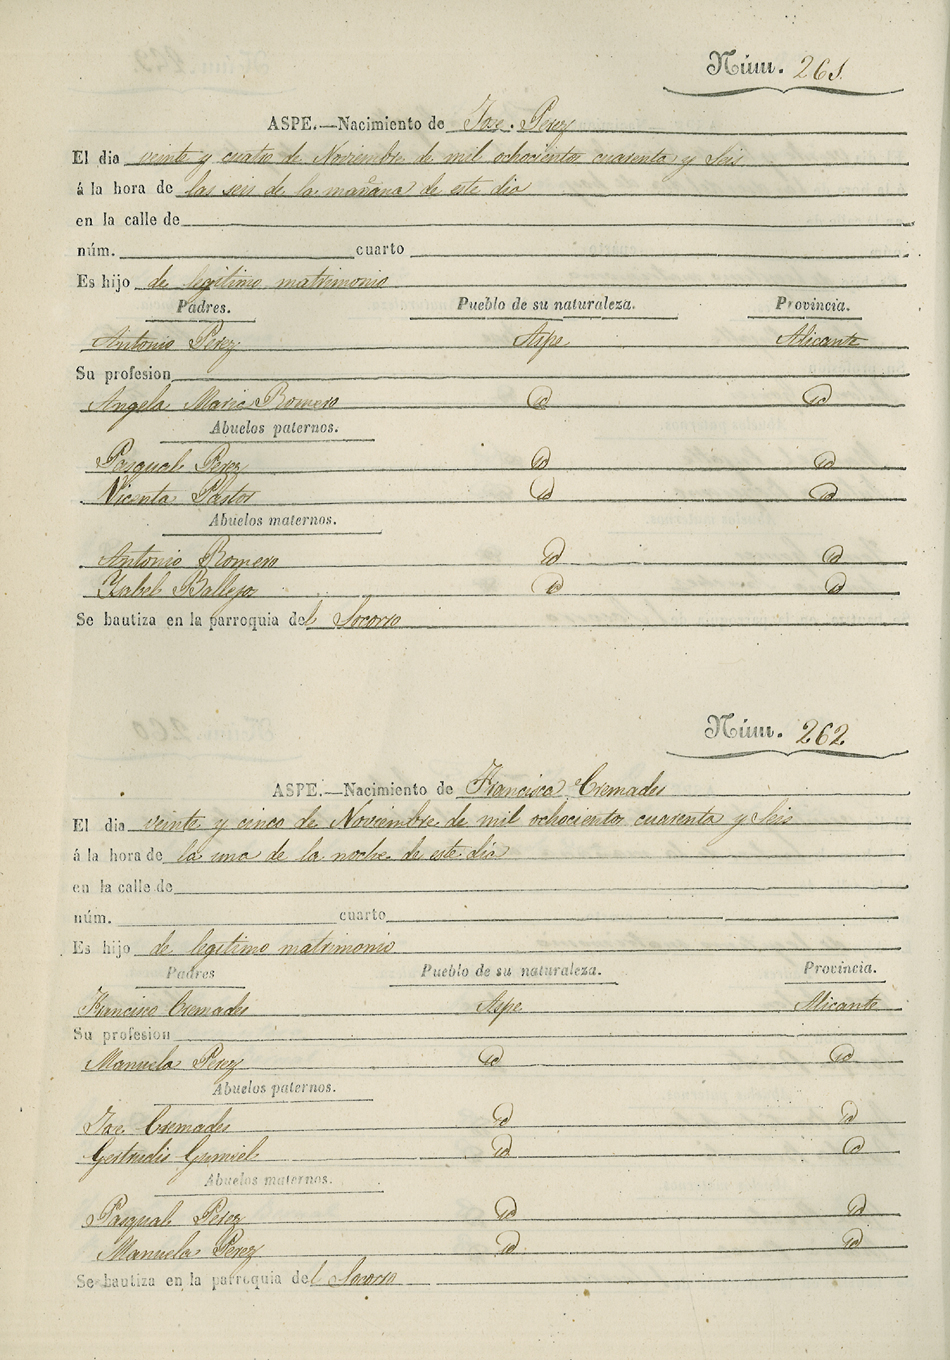 Núm. 261
ASPE.—Nacimiento de Jose Perez
El dia veinte y cuatro de Noviembre de mil ochocientos cuarenta y seis
á la hora de las seis de la mañana de este dia
en la calle de
núm. cuarto
Es hijo de legitimo matrimonio
Padres. Pueblo de su naturaleza. Provincia.
Antonio Perez Aspe Alicante
Su profesion
Angela Maria Romero id id
Abuelos paternos.
Pasqual Perez id id
Vicenta Pastor id id
Abuelos maternos.
Antonio Romero id id
Ysabel Ballejo id id
Se bautiza en la parroquia del Socorro
Núm. 262
ASPE.—Nacimiento de Francisca Cremades
El dia veinte y cinco de Noviembre de mil ochocientos cuarenta y seis
á la hora de la una de la noche de este dia
en la calle de
núm. cuarto
Es hijo de legitimo matrimonio
Padres Pueblo de su naturaleza. Provincia.
Francisco Cremades Aspe Alicante
Su profesion
Manuela Perez id id
Abuelos paternos.
Jose Cremades id id
Gertrudis Gumiel id id
Abuelos maternos.
Pasqual Perez id id
Manuela Perez id id
Se bautiza en la parroquia del Socorro